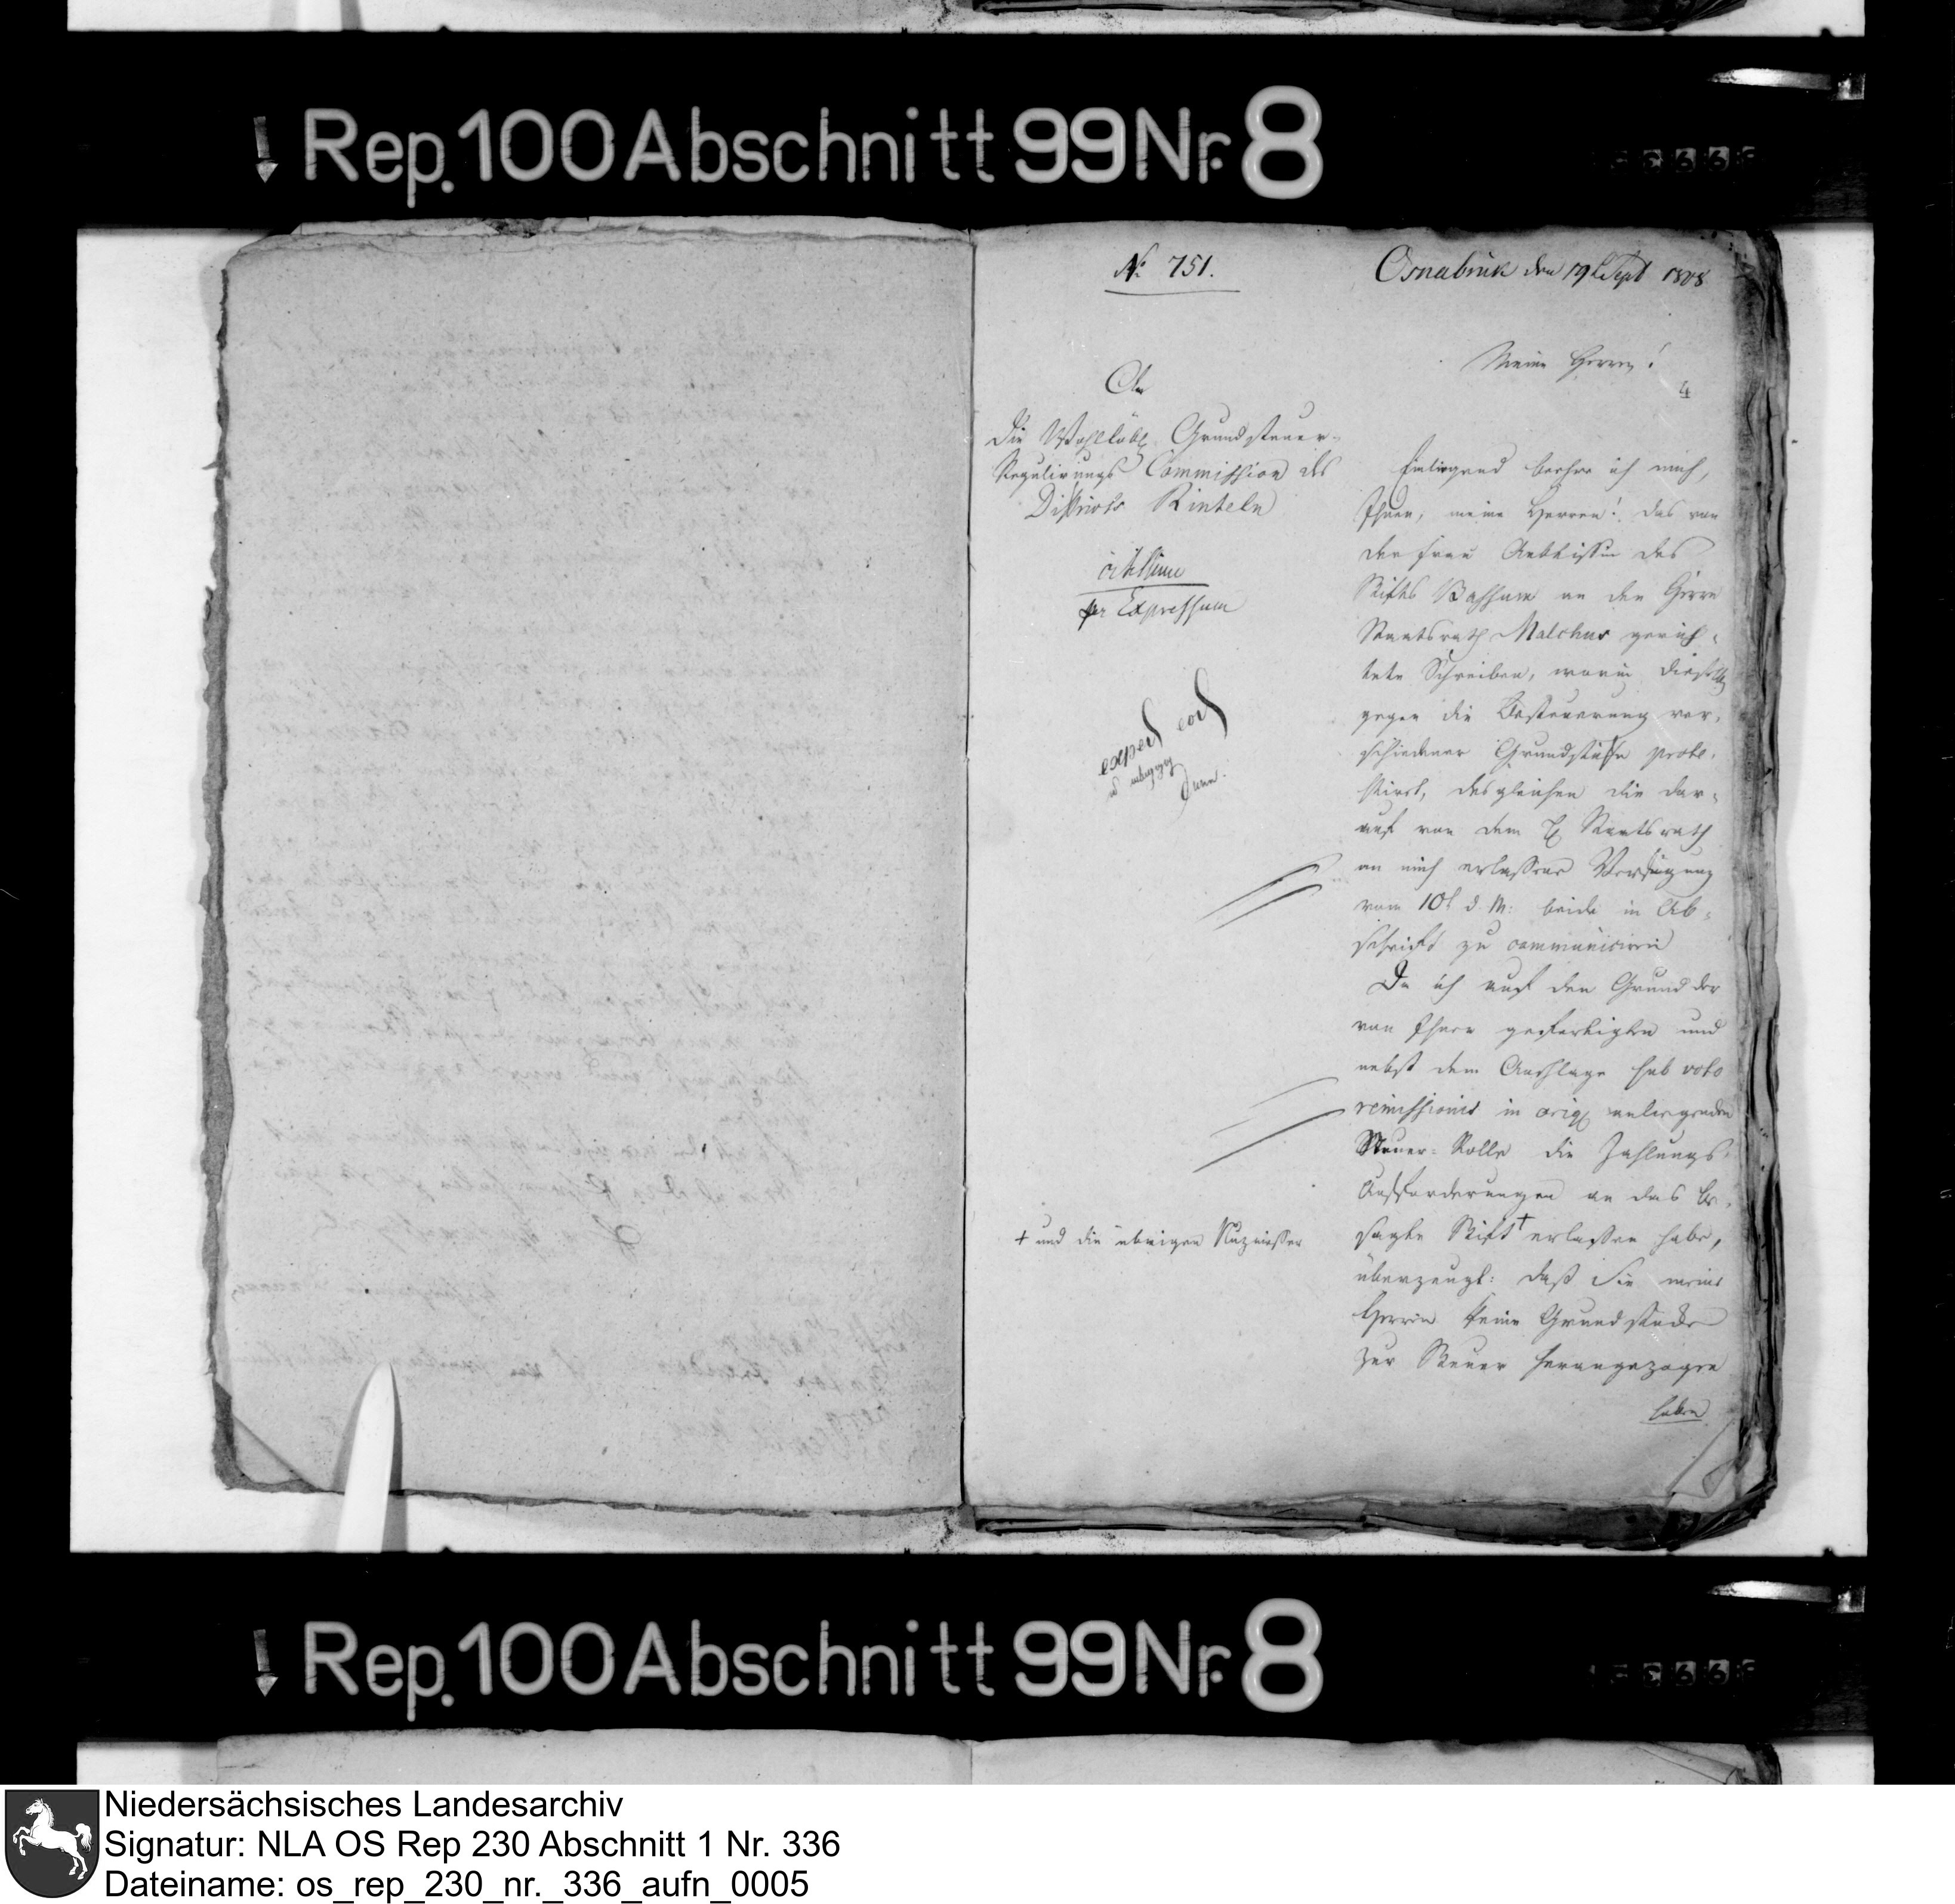 Rep. 100 Abschnitt 99 Nr. 8
No 751.
Osnabrük den 19t Sept 1808
Meine Herren!
4
An
die Wohllöbl. Grundsteuer-
Regulirungs Commission des
Districts Rinteln
citissime
per Expressum
exped eod
Einliegend beehre ich mich,
Ihnen, meine Herren! das von
der Frau Aebtissin des
Stifts Bassum an den Herrn
Staatsrath Malchus gerich-
tete Schreiben, worin dieselbe
gegen die Besteuerung ver-
schiedener Grundstücke prote-
stirt, desgleichen die dar-
auf von dem H Staatsrath
an mich erlassene Verfügung
vom 10t d. M. beide in Ab-
schrift zu communiciren
Da ich auf den Grund der
von Ihnen gefertigten und
nebst dem Anschlage sub voto
remissionis in orig. anliegenden
Steuer-Rolle die Zahlungs-
Aufforderungen an das be-
sagte Stift + erlassen habe,
+ und die übrigen Nuznießer
überzeugt: daß Sie meine
Herren keine Grundstücke
zur Steuer herangezogen
haben
Rep. 100 Abschnitt 99 Nr. 8
Niedersächsisches Landesarchiv
Signatur: NLA OS Rep 230 Abschnitt 1 Nr. 336
Dateiname: os_rep_230_nr._336_aufn_0005